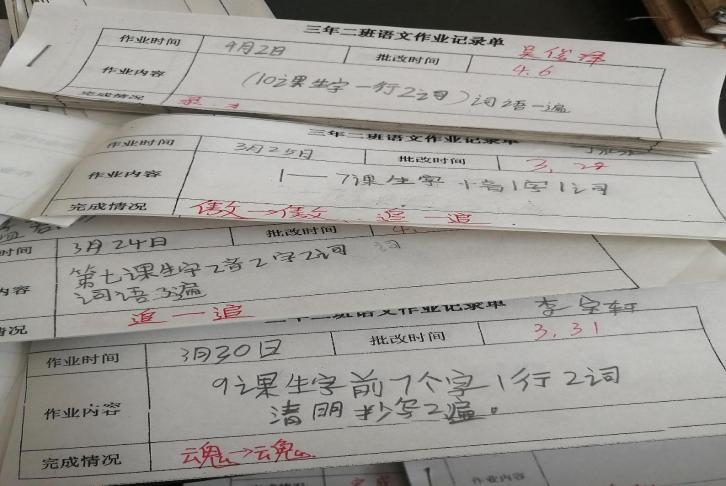 三年二班语文作业记录单
作业时间 4月2日 批改时间 4.6
作业内容 (10课生字一行2词)词语一遍
完成情况
三年二班语文作业记录单
作业时间 3月25日 批改时间 3.28
作业内容 1—7课生字1音1字1词
完成情况 傲→傲 追一追
时间 3月24日 批改时间
内容 第七课生字2音2字2词
词语3遍
情况 追一追
三年二班语文作业记录单 李宗轩
作业时间 3月30日 批改时间 3.31
作业内容 9课生字前7个字1行2词
清明抄写2遍。
完成情况 魂→魂
作业内容